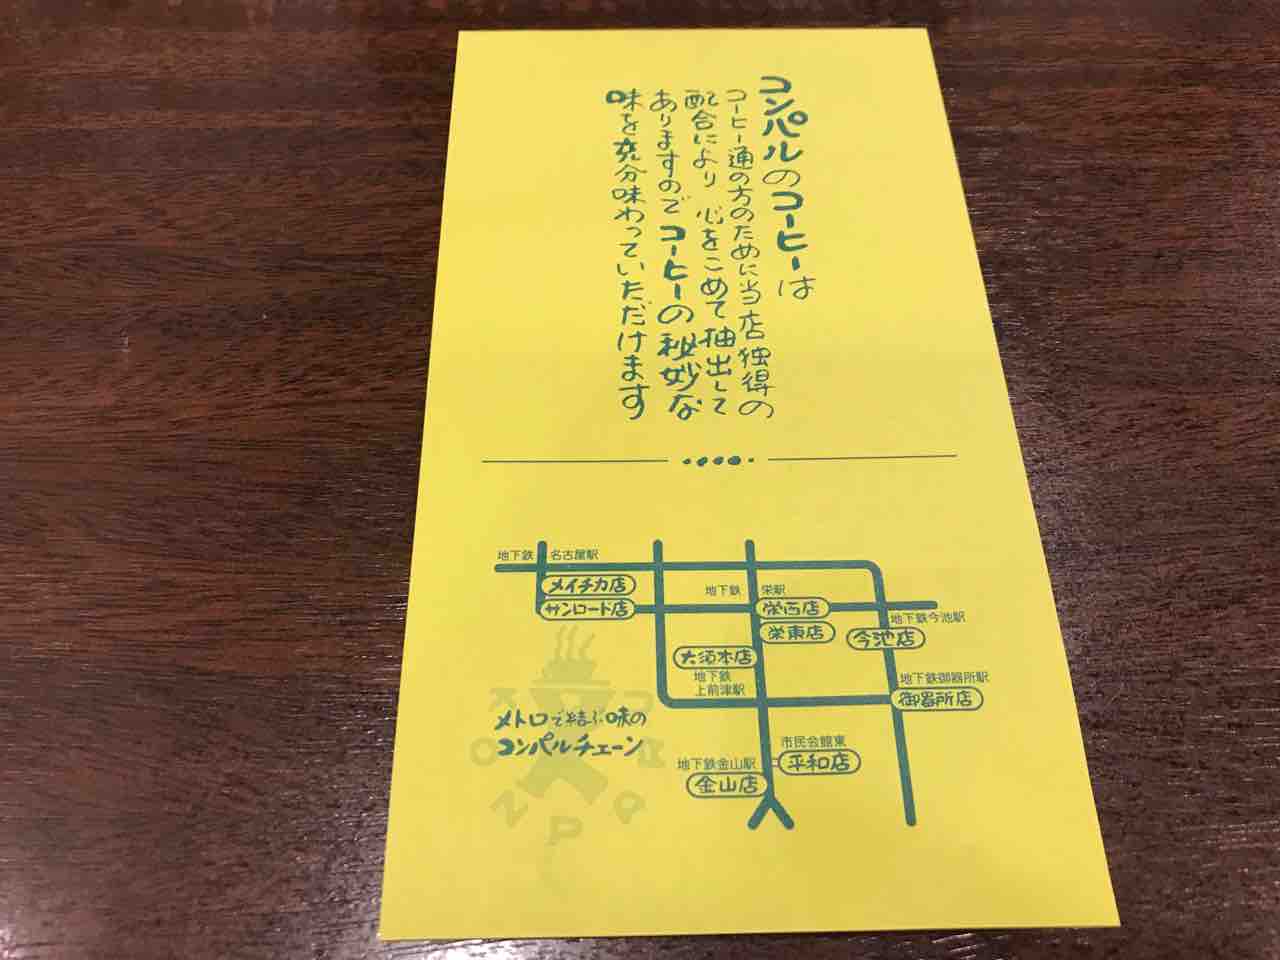 コンパルのコーヒーは
コーヒー通の方のために当店独得の
配合により 心をこめて抽出して
ありますので コーヒーの秘妙な
味を充分味わっていただけます
地下鉄 名古屋駅
メイチカ店
サンロード店
地下鉄 栄駅
栄西店
栄東店
地下鉄今池駅
今池店
大須本店
地下鉄
上前津駅
地下鉄御器所駅
御器所店
メトロで結ぶ味の
コンパルチェーン
市民会館東
平和店
地下鉄金山駅
金山店